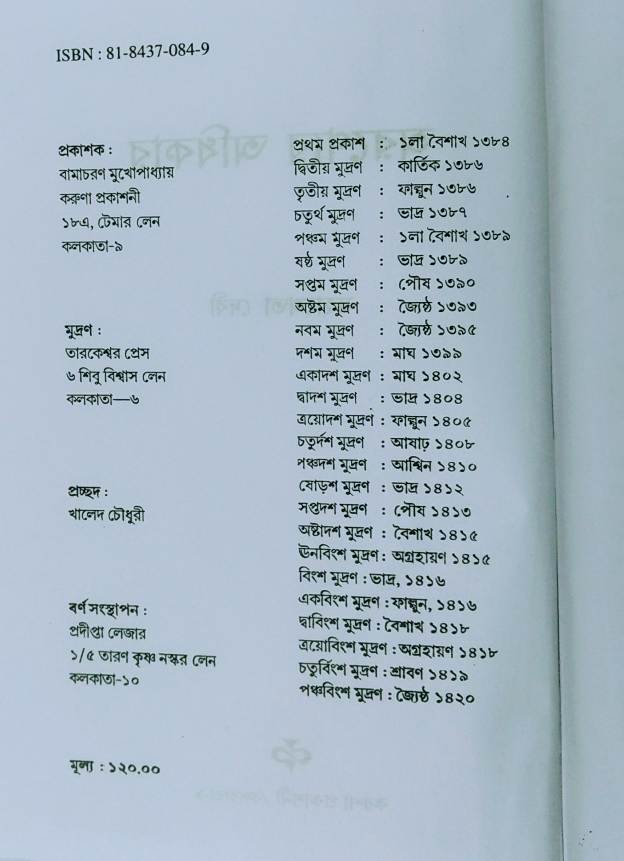 ISBN : 81-8437-084-9
প্রকাশক :
বামাচরণ মুখোপাধ্যায়
করুণা প্রকাশনী
১৮এ, টেমার লেন
কলকাতা-৯
মুদ্রণ :
তারকেশ্বর প্রেস
৬ শিবু বিশ্বাস লেন
কলকাতা—৬
প্রচ্ছদ :
খালেদ চৌধুরী
বর্ণ সংস্থাপন :
প্রদীপ্তা লেজার
১/৫ তারণ কৃষ্ণ নস্কর লেন
কলকাতা-১০
মূল্য : ১২০.০০
প্রথম প্রকাশ : ১লা বৈশাখ ১৩৮৪
দ্বিতীয় মুদ্রণ : কার্তিক ১৩৮৬
তৃতীয় মুদ্রণ : ফাল্গুন ১৩৮৬
চতুর্থ মুদ্রণ : ভাদ্র ১৩৮৭
পঞ্চম মুদ্রণ : ১লা বৈশাখ ১৩৮৯
ষষ্ঠ মুদ্রণ : ভাদ্র ১৩৮৯
সপ্তম মুদ্রণ : পৌষ ১৩৯০
অষ্টম মুদ্রণ : জ্যৈষ্ঠ ১৩৯৩
নবম মুদ্রণ : জ্যৈষ্ঠ ১৩৯৫
দশম মুদ্রণ : মাঘ ১৩৯৯
একাদশ মুদ্রণ : মাঘ ১৪০২
দ্বাদশ মুদ্রণ : ভাদ্র ১৪০৪
ত্রয়োদশ মুদ্রণ : ফাল্গুন ১৪০৫
চতুর্দশ মুদ্রণ : আষাঢ় ১৪০৮
পঞ্চদশ মুদ্রণ : আশ্বিন ১৪১০
ষোড়শ মুদ্রণ : ভাদ্র ১৪১২
সপ্তদশ মুদ্রণ : পৌষ ১৪১৩
অষ্টাদশ মুদ্রণ : বৈশাখ ১৪১৫
ঊনবিংশ মুদ্রণ : অগ্রহায়ণ ১৪১৫
বিংশ মুদ্রণ : ভাদ্র, ১৪১৬
একবিংশ মুদ্রণ : ফাল্গুন, ১৪১৬
দ্বাবিংশ মুদ্রণ : বৈশাখ ১৪১৮
ত্রয়োবিংশ মুদ্রণ : অগ্রহায়ণ ১৪১৮
চতুর্বিংশ মুদ্রণ : শ্রাবণ ১৪১৯
পঞ্চবিংশ মুদ্রণ : জ্যৈষ্ঠ ১৪২০